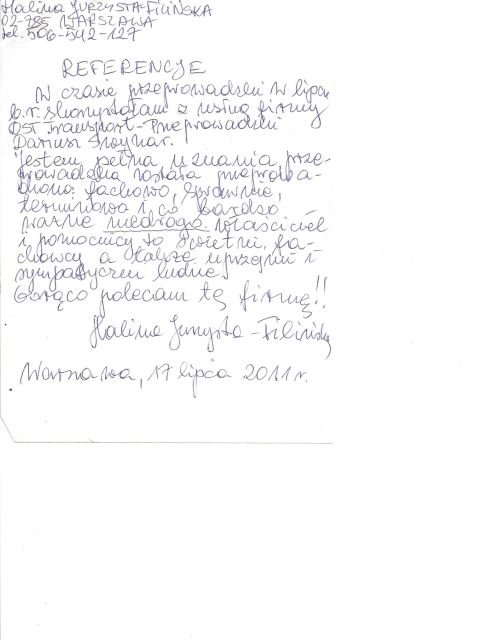 Halina JURZYSTA-FILIŃSKA
02-785 WARSZAWA
tel. 506-542-127
REFERENCJE
W czasie przeprowadzki w lipcu
b.r. skorzystałam z usług firmy
OST Transport-Przeprowadzki
Dariusz
Jestem pełna uznania, prze-
prowadzka została przeprowa-
dzona: fachowo, sprawnie,
terminowo i, co bardzo
ważne niedrogo. Właściciel
i pomocnicy to świetni, fa-
chowcy a także uprzejmi i
sympatyczni ludzie!
Gorąco polecam tę firmę!!
Halina Jurzysta-Filińska
Warszawa, 17 lipca 2011 r.